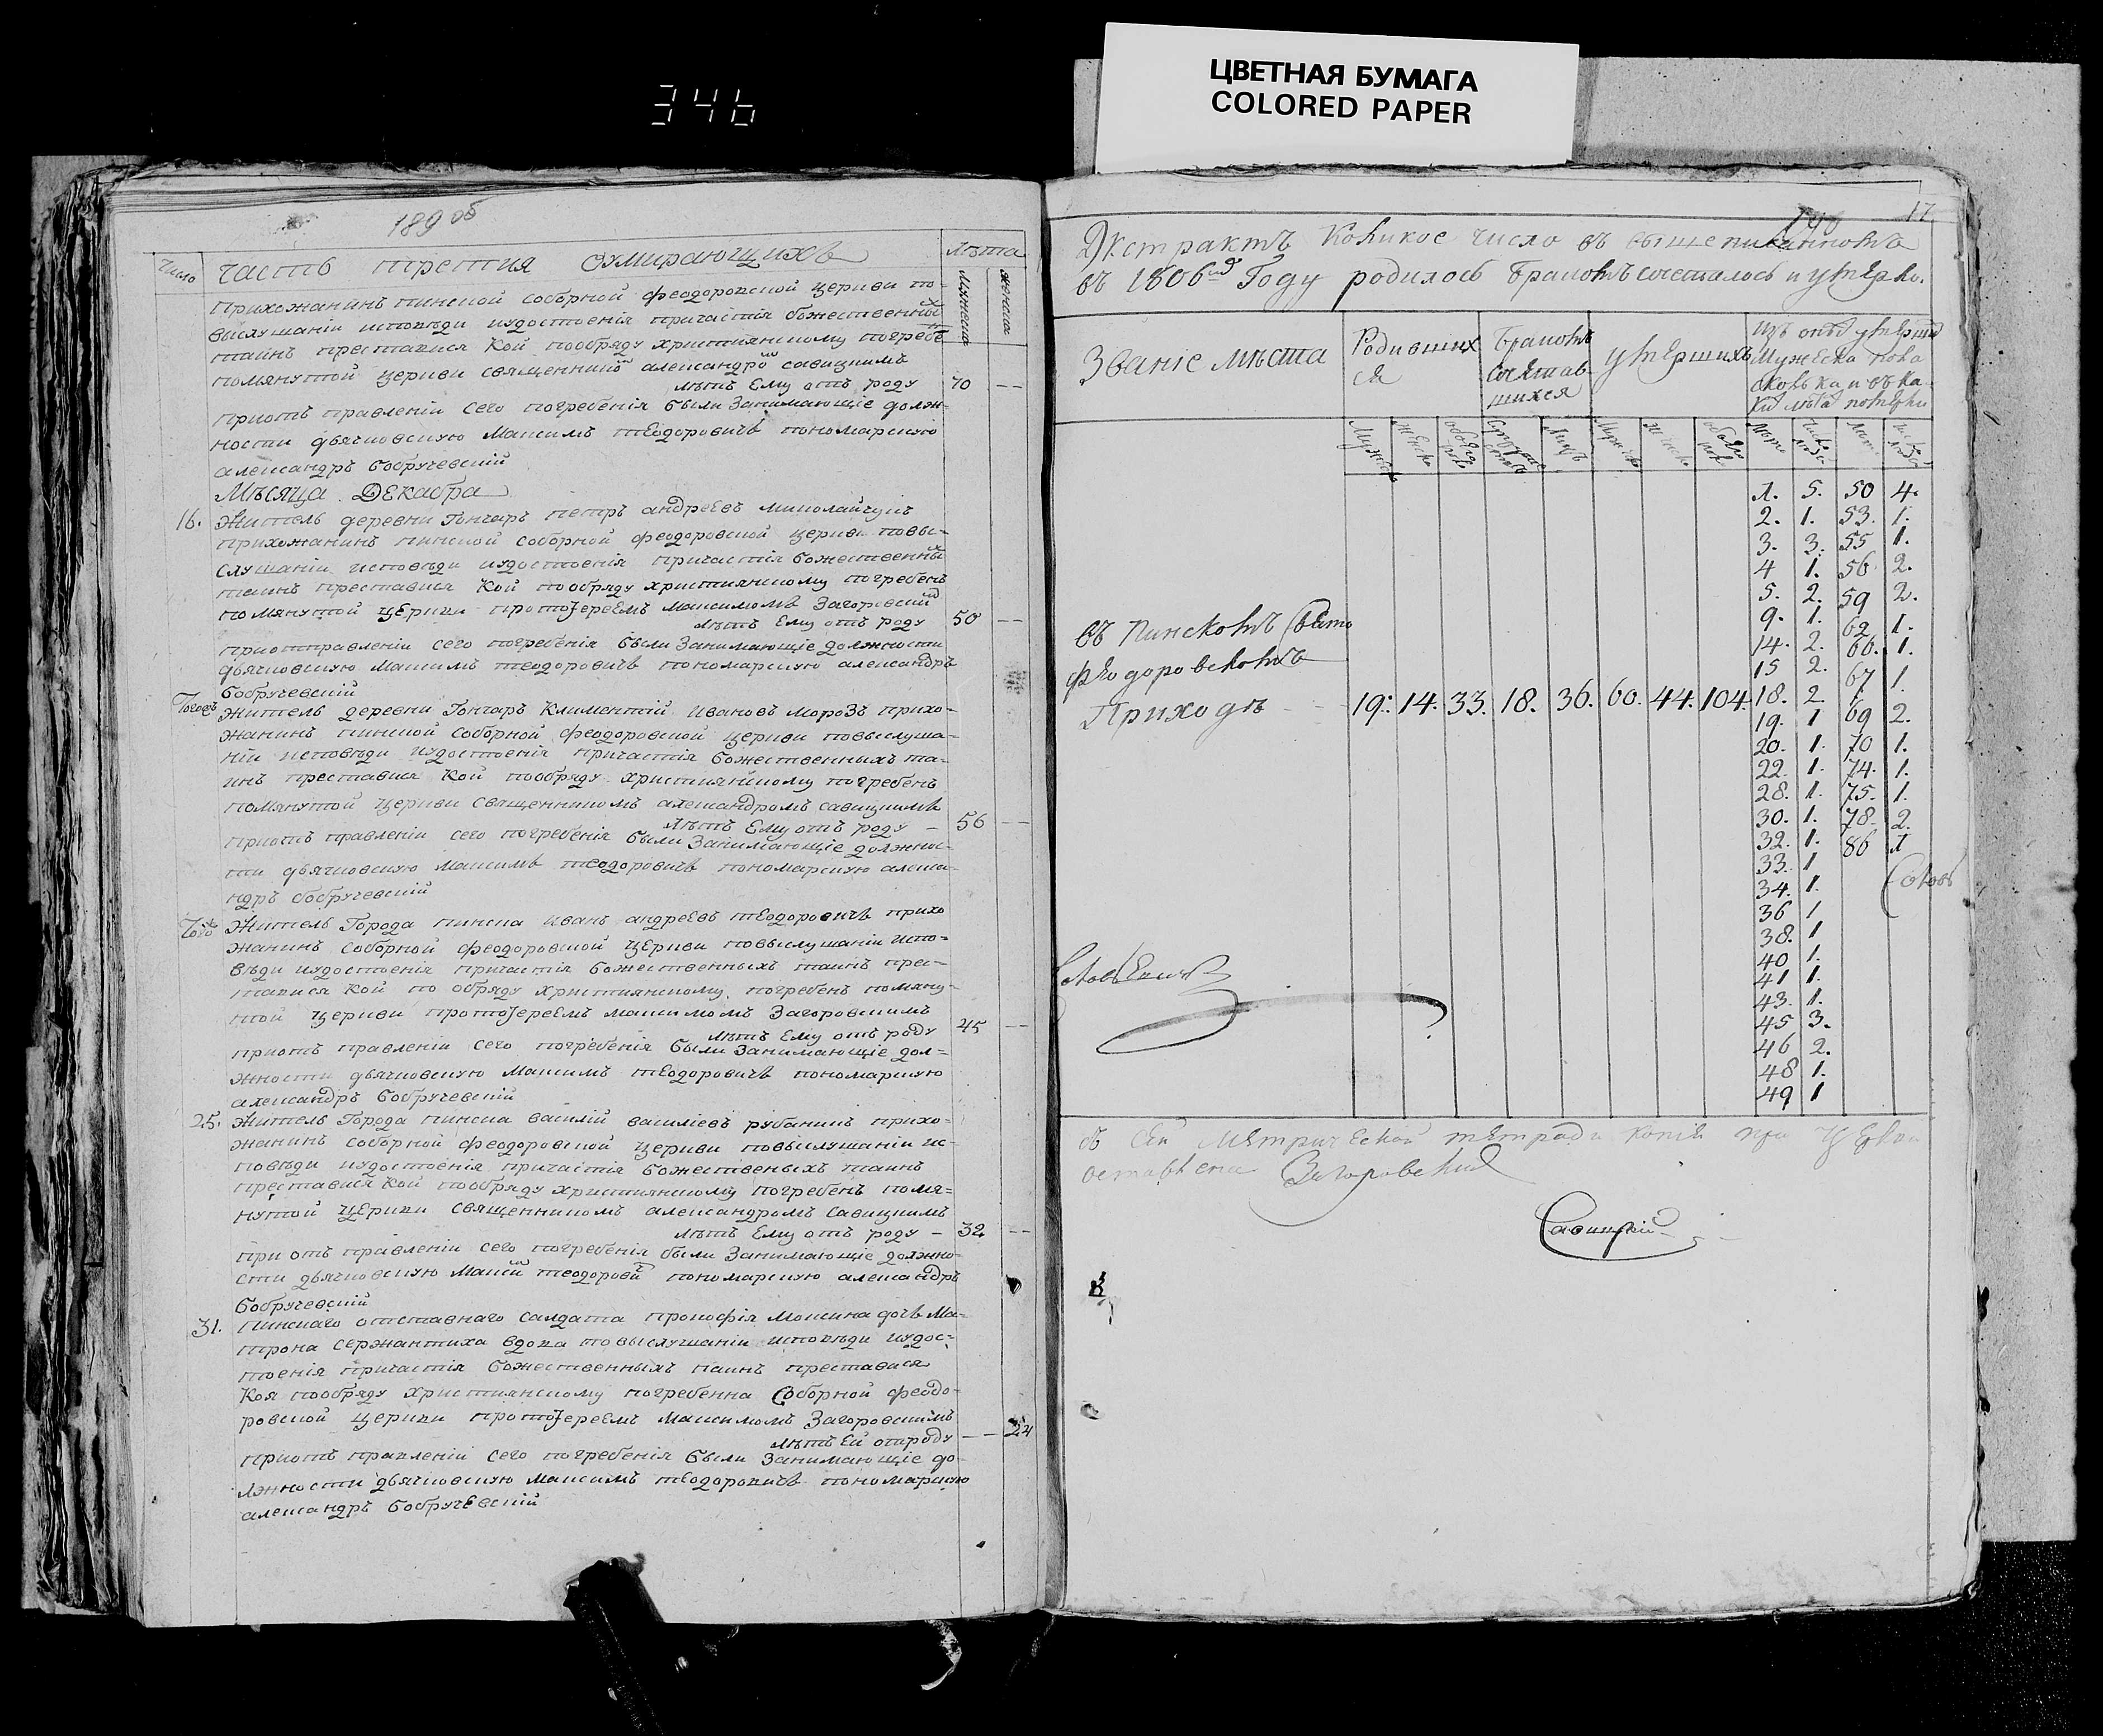 346
ЦВЕТНАЯ БУМАГА
COLORED PAPER
189 об
Число
часть третия оумирающихъ
лѣта
мужеска
женска
прихожанинъ пинской соборной феодоровской церкви по-
выслушаніи исповѣди иудостоенія причастія божественных
таинъ преставися кой пообряду християнскому погребен
помянутой церкви священником александром савицкимъ
лѣтъ Ему отъ роду 70 --
приотъ правленіи сего погребенія были Занимающіе долж-
ности дьячковскую Максимъ теодоровичъ пономарскую
александръ бобручевскій
Мѣсяца Декабра
16. Житель деревни Гончаръ петръ андреевъ миколайчукъ
прихожанинъ пинской соборной феодоровской церкви повы-
слушаніи исповѣди иудостоенія причастія божественных
таинъ преставися Кой пообряду християнскому погребенъ
помянутой церкви протоІереемъ максимомъ Загоровским
лѣтъ Ему отъ роду 50 --
приотправленіи сего погребенія были Занимающіе должности
дьячковскую Максимъ теодоровичъ пономарскую александръ
бобручевскій
Житель деревни Гончаръ Климентій Ивановъ морозъ прихо-
жанинъ пинской соборной феодоровской церкви повыслуша-
ніи исповѣди иудостоенія причастія божественныхъ та-
инъ преставися Кой пообряду християнскому погребенъ
помянутой церкви священникомъ александромъ савицкимъ
лѣтъ Ему отъ роду - 56 --
приотъ правленіи сего погребенія были Занимающіе должнос-
ти дьячковскую максимъ теодоровичъ пономарскую алекса-
ндръ бобручевскій
Житель Города пинска иванъ андреевъ теодоровичъ прихо
жанинъ соборной феодоровской церкви повыслушаніи испо-
вѣди иудостоенія причастія божественныхъ таинъ прес-
тавися Кой по обряду християнскому погребенъ помяну-
той церкви протоІереемъ максимомъ Загоровскимъ
лѣтъ Ему отъ роду 45 --
приотъ правленіи сего погребенія были Занимающіе дол-
жности дьячковскую Максимъ теодоровичъ пономарскую
александръ бобручевскій
25. Житель Города пинска василій василіевъ рубаникъ прихо-
жанинъ соборной феодоровской церкви повыслушаніи ис-
повѣди иудостоенія причастія божественыхъ таинъ
преставися Кой пообряду християнскому погребенъ помя-
нутой церкви священникомъ александромъ савицкимъ
лѣтъ Ему отъ роду - 32 --
при отъ правленіи сего погребенія были Занимающіе должно-
сти дьячковскую Максим теодорович пономарскую александръ
бобручевскій
31. пинскаго отставнаго салдата прокофія Мокина дочь Ма-
трона сержантиха вдова повыслушаніи исповѣди иудос-
тоенія причастія божественныхъ таинъ преставися
Коя пообряду християнскому погребенна Соборной феодо-
ровской церкви протоІереемъ максимомъ Загоровскимъ
лѣтъ Ей отроду -- 24
приотъ правленіи сего погребенія были Занимающіе до-
лжности дьячковскую максимъ теодоровичъ пономарскую
александръ бобручевскій
17
190
Экстрактъ Коликое число въ вышеписанномъ
въ 1806мъ Году родилось браковъ сочеталось и умерло.
Званіе мѣста
Родивших
ся
браковъ
сочетав-
шихся
умершихъ
Изъ онѣхъ умерших
Мужеска пола
сколька и въ ка
ких лѣтах померли
Мужеск
Женска
обоего
Лицъ
Мужеска
Женска
Лѣта
Лѣта
въ Пинскомъ Свято
Феодоровскомъ
Приходѣ 19. 14. 33. 18. 36. 60. 44. 104.
1. 5. 50 4.
2. 1. 53. 1.
3. 3. 55 1.
4 1. 56 2.
5. 2. 59 2.
9. 1. 62 1.
14. 2. 66. 1.
15 2. 67 1.
18. 2.
19. 1 69 2.
20. 1. 70 1.
22. 1. 74. 1.
28. 1. 75. 1.
30. 1. 78. 2.
32. 1. 86 1
33. 1
34. 1.
36 1
38. 1
40 1.
41 1.
43. 1.
45 3.
46 2.
48 1.
49 1
съ сей метрической тетради копія при церкви
оставлена Загоровский
Савицкій